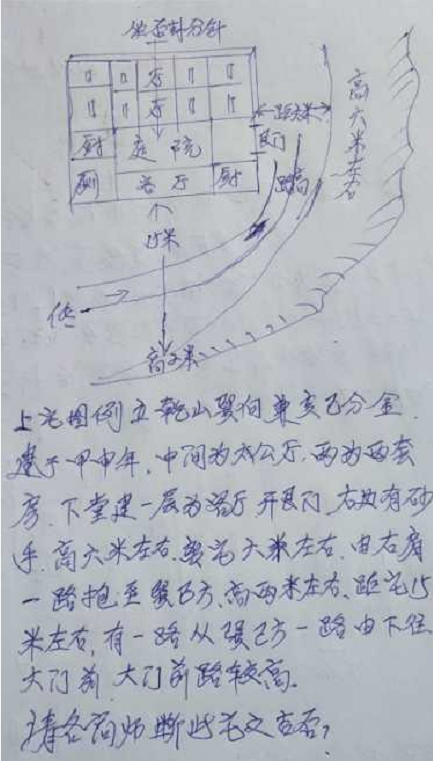 厅
厅
厨 庭院
厕 客厅 厨
艮门
路高
15米
高六米左右
高2米
上宅图例立乾山巽向兼亥巳分金
建于甲申年，中间为太公厅，两为两套
房，下堂建一层为客厅开艮门，右边有砂
手，高六米左右，离宅六米左右，由右肩
一路抱至巽巳方，高两米左右，距宅15
米左右，有一路从巽巳方一路由下往
大门前，大门前路较高。
请各高师断此宅文吉否？